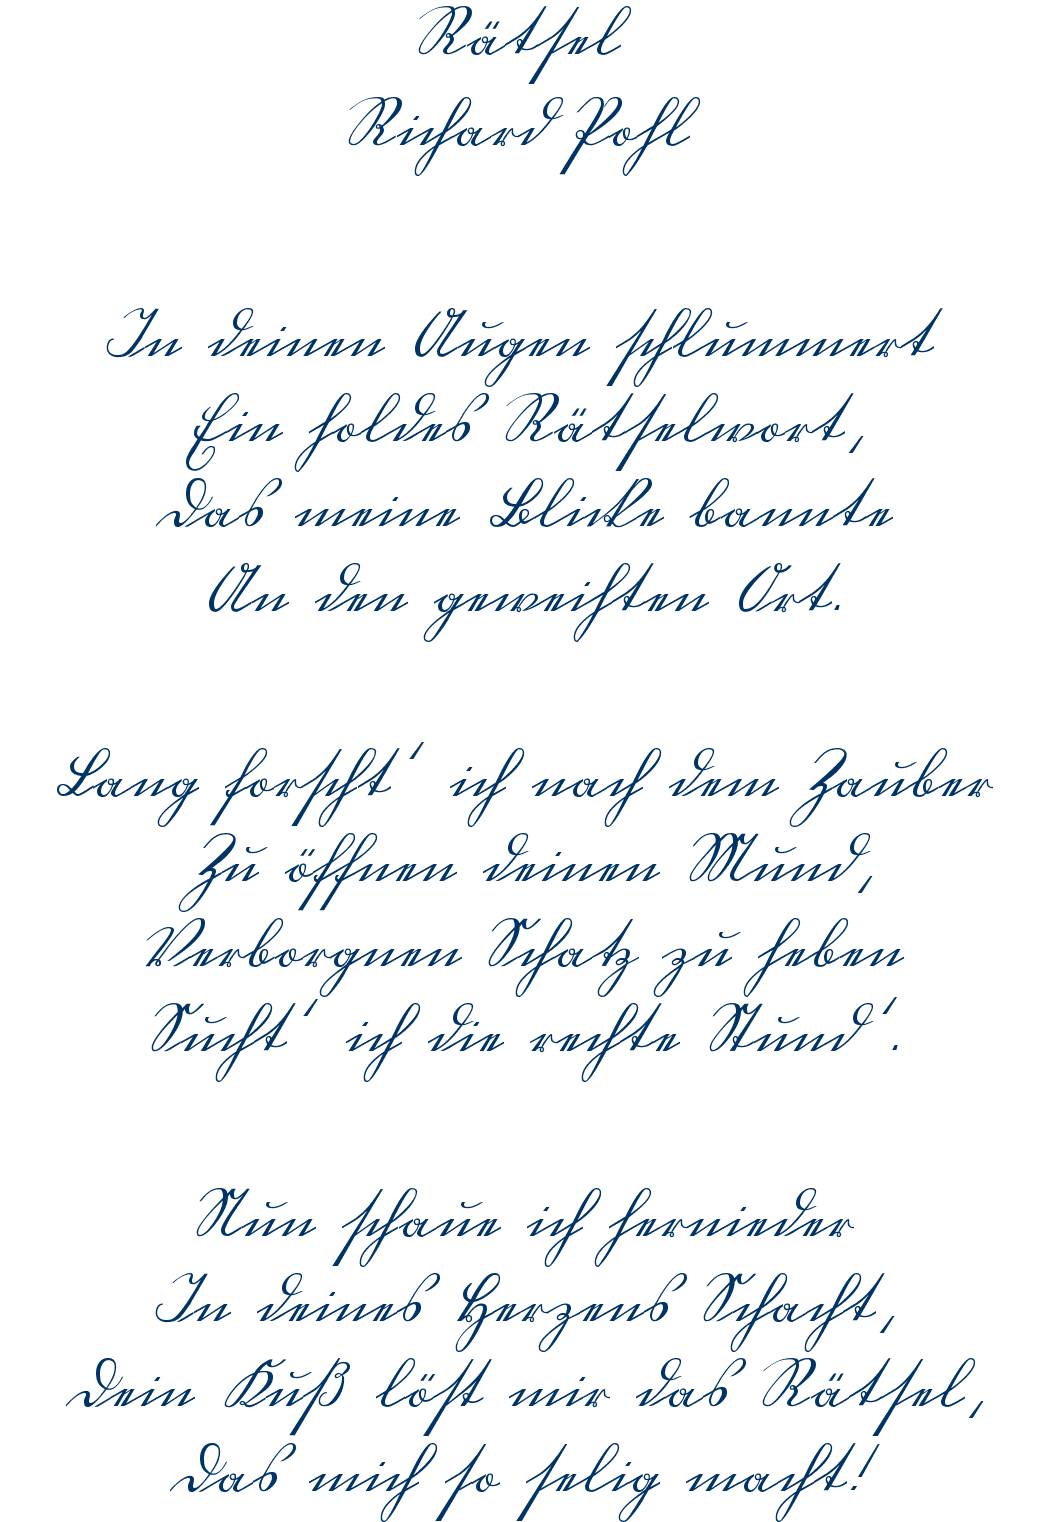 Rätsel
Richard Pohl
In deinen Augen schlummert
Ein holdes Rätselwort,
Das meine Blicke bannte
An den geweihten Ort.
Lang forscht' ich nach dem Zauber
Zu öffnen deinen Mund,
Verborgnen Schatz zu heben
Sucht' ich die rechte Stund'.
Nun schaue ich hernieder
In deines Herzens Schacht,
Dein Kuß löst mir das Rätsel,
Das mich so selig macht!